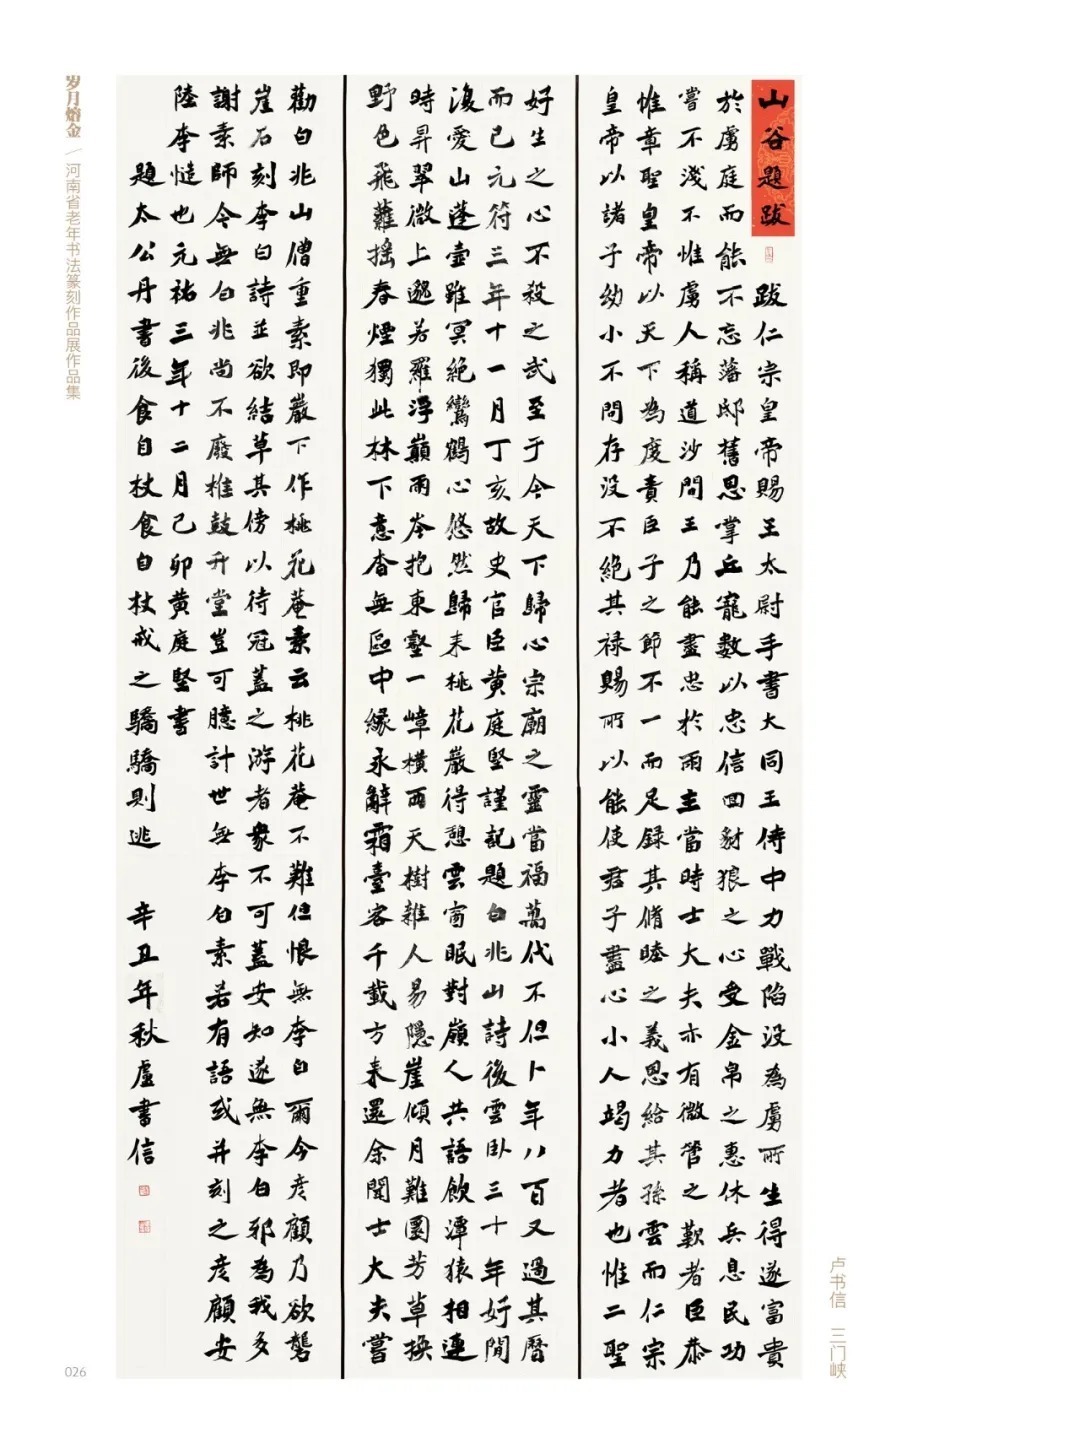 山谷題跋
跋仁宗皇帝賜王太尉手書大同王侍中力戰陷没為虜所生得遂富貴
於虜庭而能不忘藩邸舊恩掌丘寵數以忠信回豺狼之心受金帛之惠休兵息民功
嘗不淺不惟虜人稱道沙間王乃能盡忠於兩主當時士大夫亦有微管之歎者臣恭
惟章聖皇帝以天下為度責臣子之節不一而足録其脩睦之義恩給其孫雲而仁宗
皇帝以諸子幼小不問存没不絶其禄賜所以能使君子盡心小人竭力者也惟二聖
好生之心不殺之武至于今天下歸心宗廟之靈當福萬代不但卜年八百又過其曆
而已元符三年十一月丁亥故史官臣黄庭堅謹記題白兆山詩後雲卧三十年好閒
復愛山蓬壺雖冥絶鸞鶴心悠然歸来桃花巖得憩雲窗眠對嶺人共語飲潭猿相連
時昇翠微上邈若羅浮巔雨岑抱東壑一嶂横西天樹雜人易隱崖傾月難圓芳草換
野色飛蘿摇春煙獨此林下意杳無區中縁永辭霜臺客千載方来還余聞士大夫嘗
勸白兆山僧重素即巖下作桃花菴素云桃花菴不難但恨無李白爾今彦顧乃欲礱
崖石刻李白詩並欲結草其傍以待冠蓋之游者衆不可蓋安知遂無李白邪為我多
謝素師今無白兆尚不廢椎鼓升堂豈可臆計世無李白素若有語或并刻之彦顧安
陸李慥也元祐三年十二月己卯黄庭堅書
題太公丹書後食自杖食自杖戒之驕驕則逃 辛丑年秋盧書信
岁月熔金／河南省老年书法篆刻作品展作品集
卢书信 三门峡
026